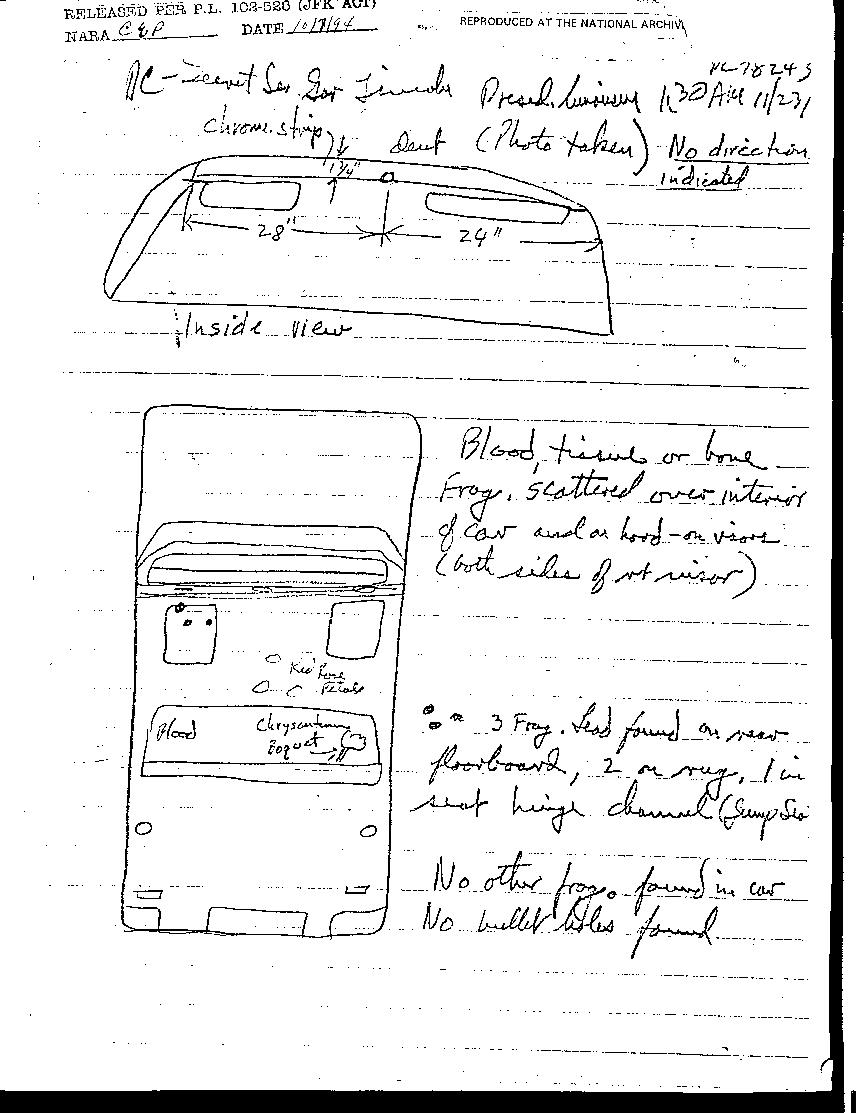 RELEASED PER P.L. 102-526 (JFK ACT)
NARA C&P DATE 10/7/94
REPRODUCED AT THE NATIONAL ARCHIV
PC-78243
DC - Secret Ser. Gar Lincoln Presid. limousine 1:30 AM 11/23/
Chrome strip
Dent (Photo taken) No direction
indicated
1 3/4"
28" 24"
Inside view
Blood, tissue or bone
Frag. scattered over interior
of car and on hood - on visors
(both sides of rt visor)
Red Rose
Petals
Blood
Chrysantemum
Boquet
3 Frag. Lead found on rear
floorboard, 2 on rug, 1 in
seat hinge channel (Jump Sea
No other frag. found in car
No bullet holes found